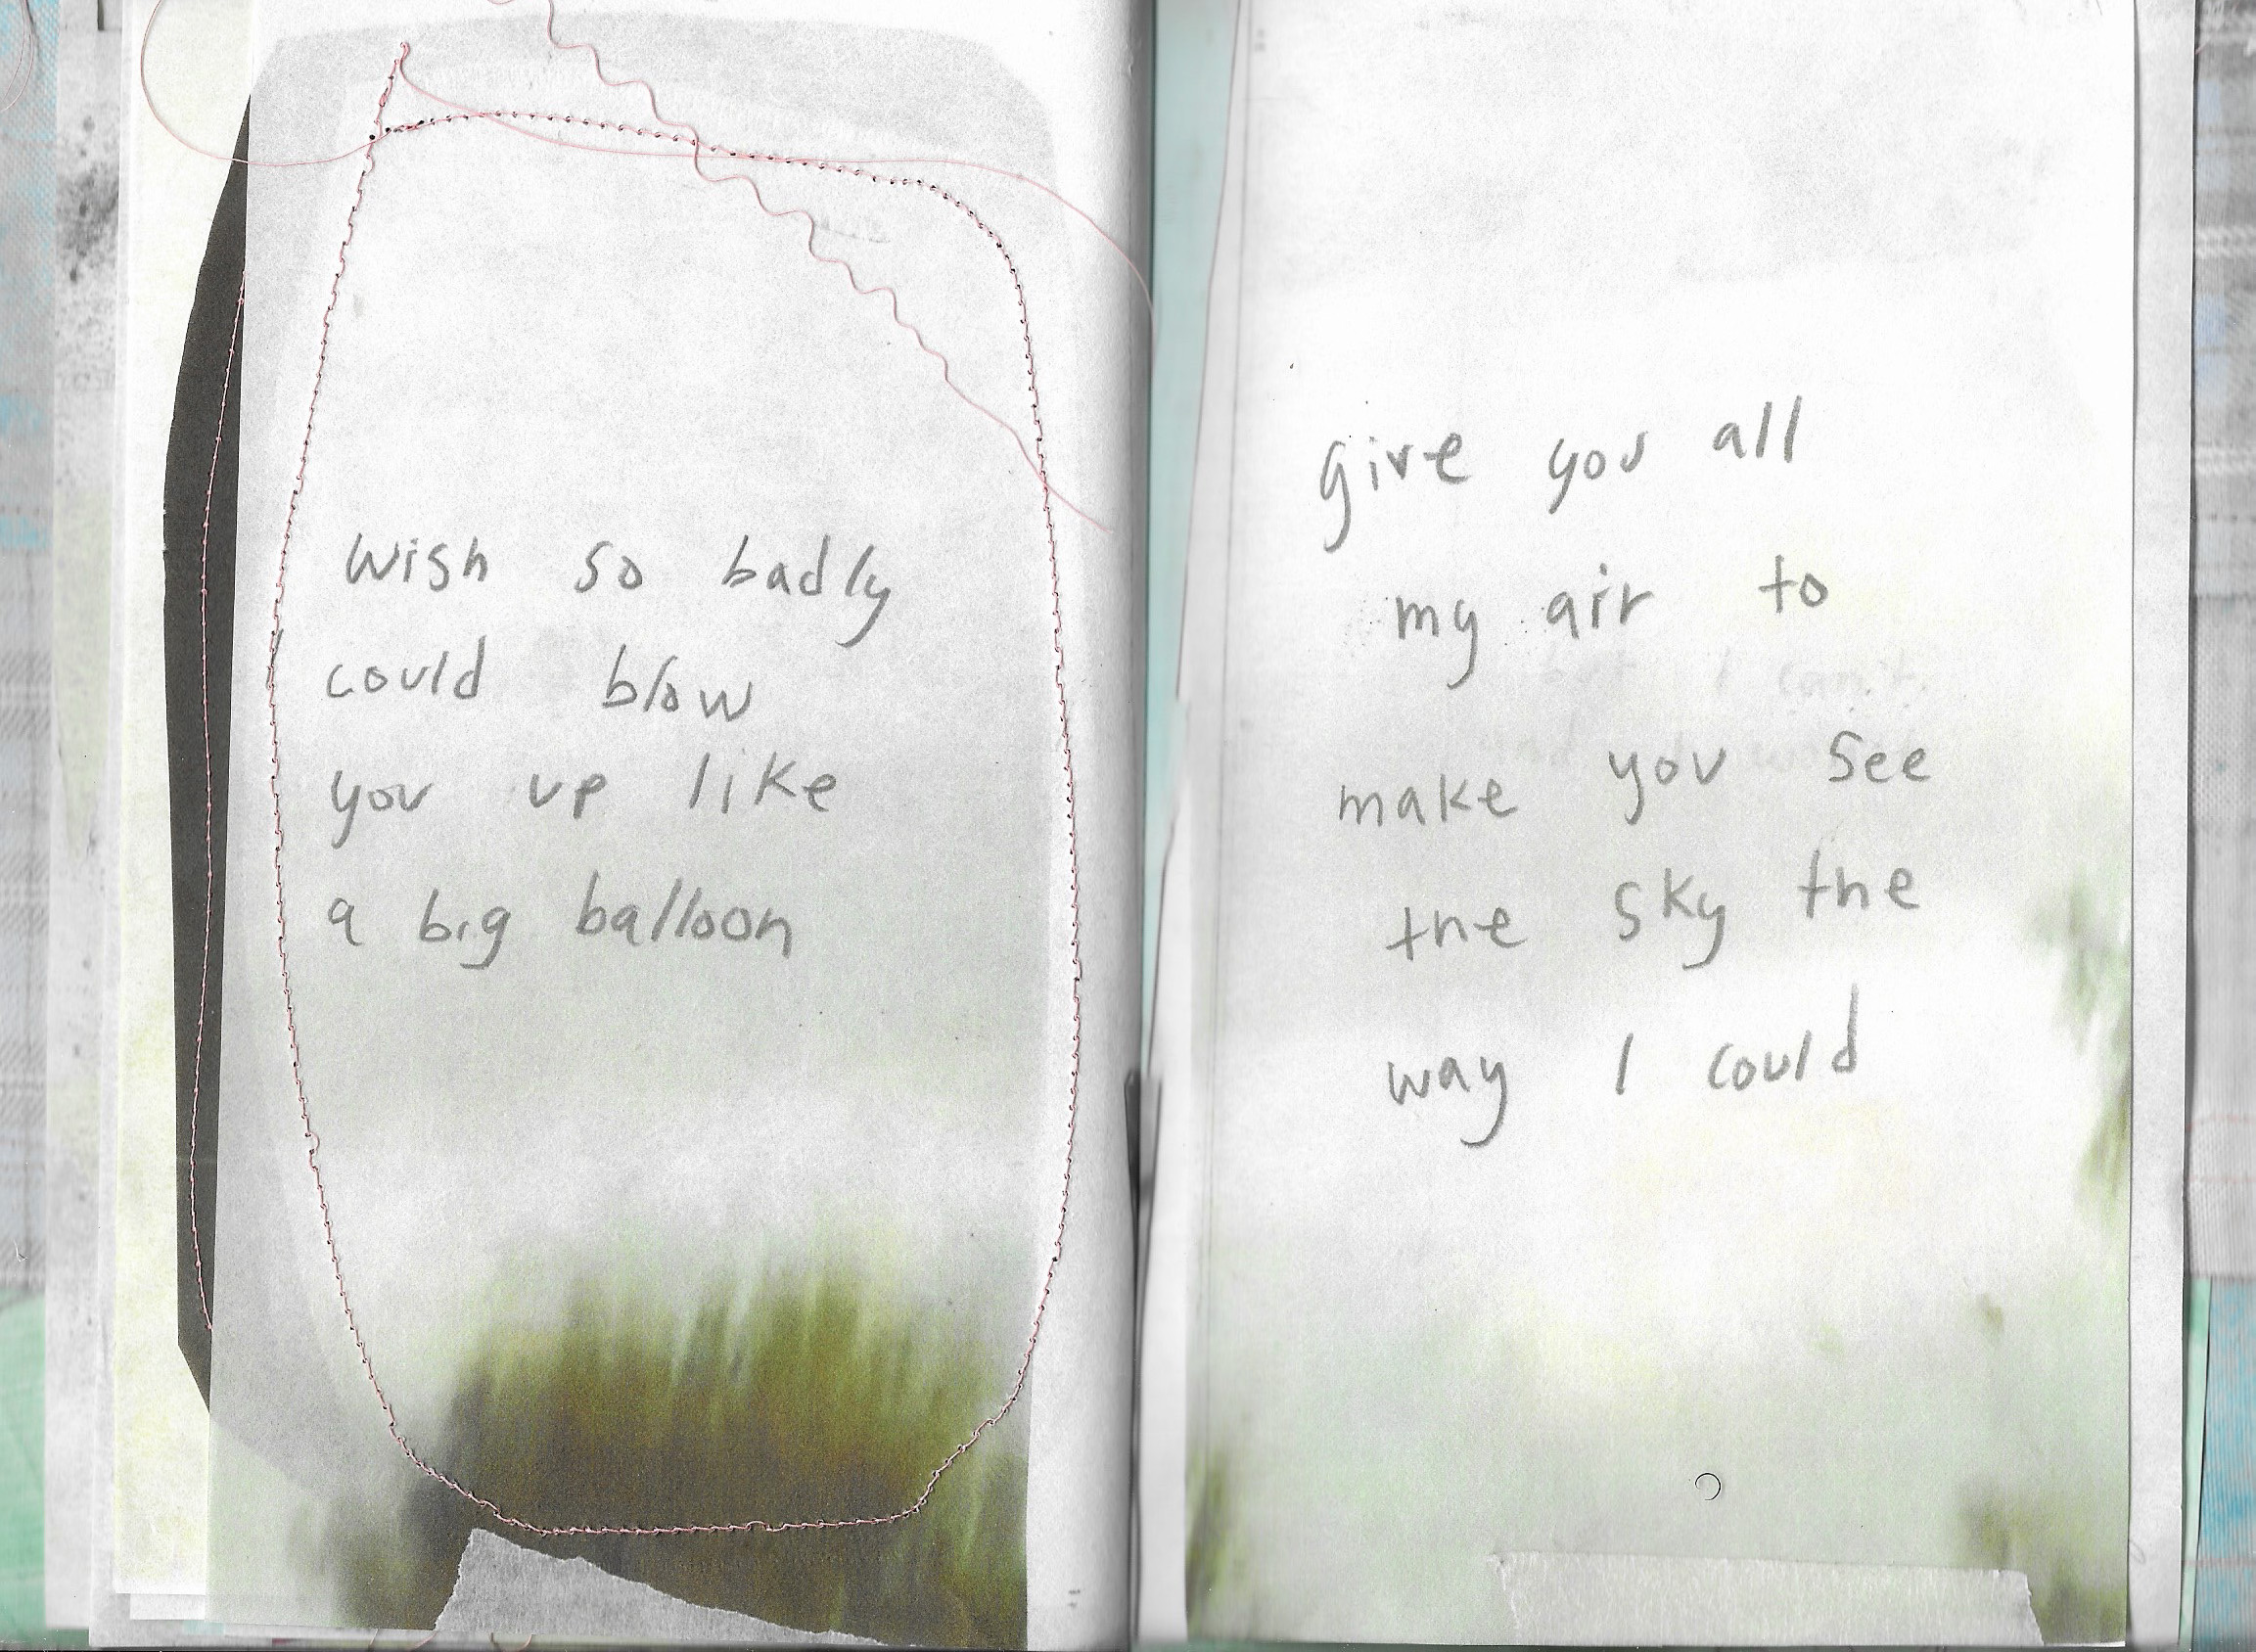 wish so badly
could blow
you up like
a big balloon
give you all
my air to
but I can't.
make you see
the sky the
way I could